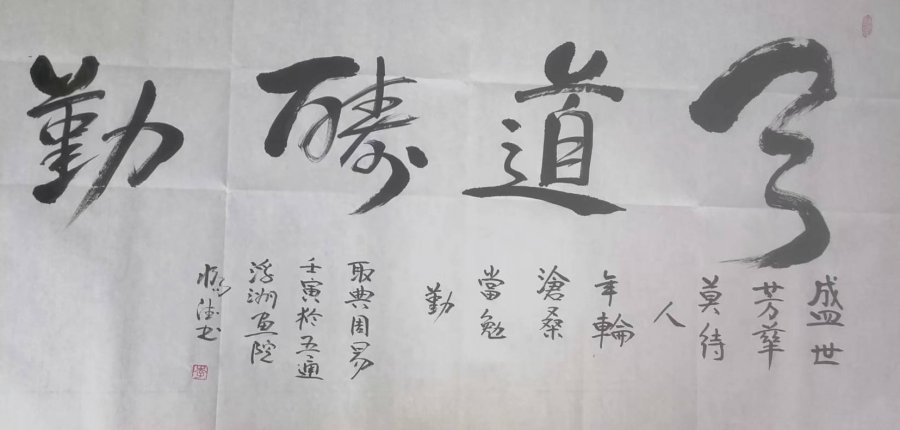 天道酬勤
盛世
芳華
莫待
人
年輪
滄桑
當勉
勤
取典周易
壬寅於五通
浮湖画院
德书